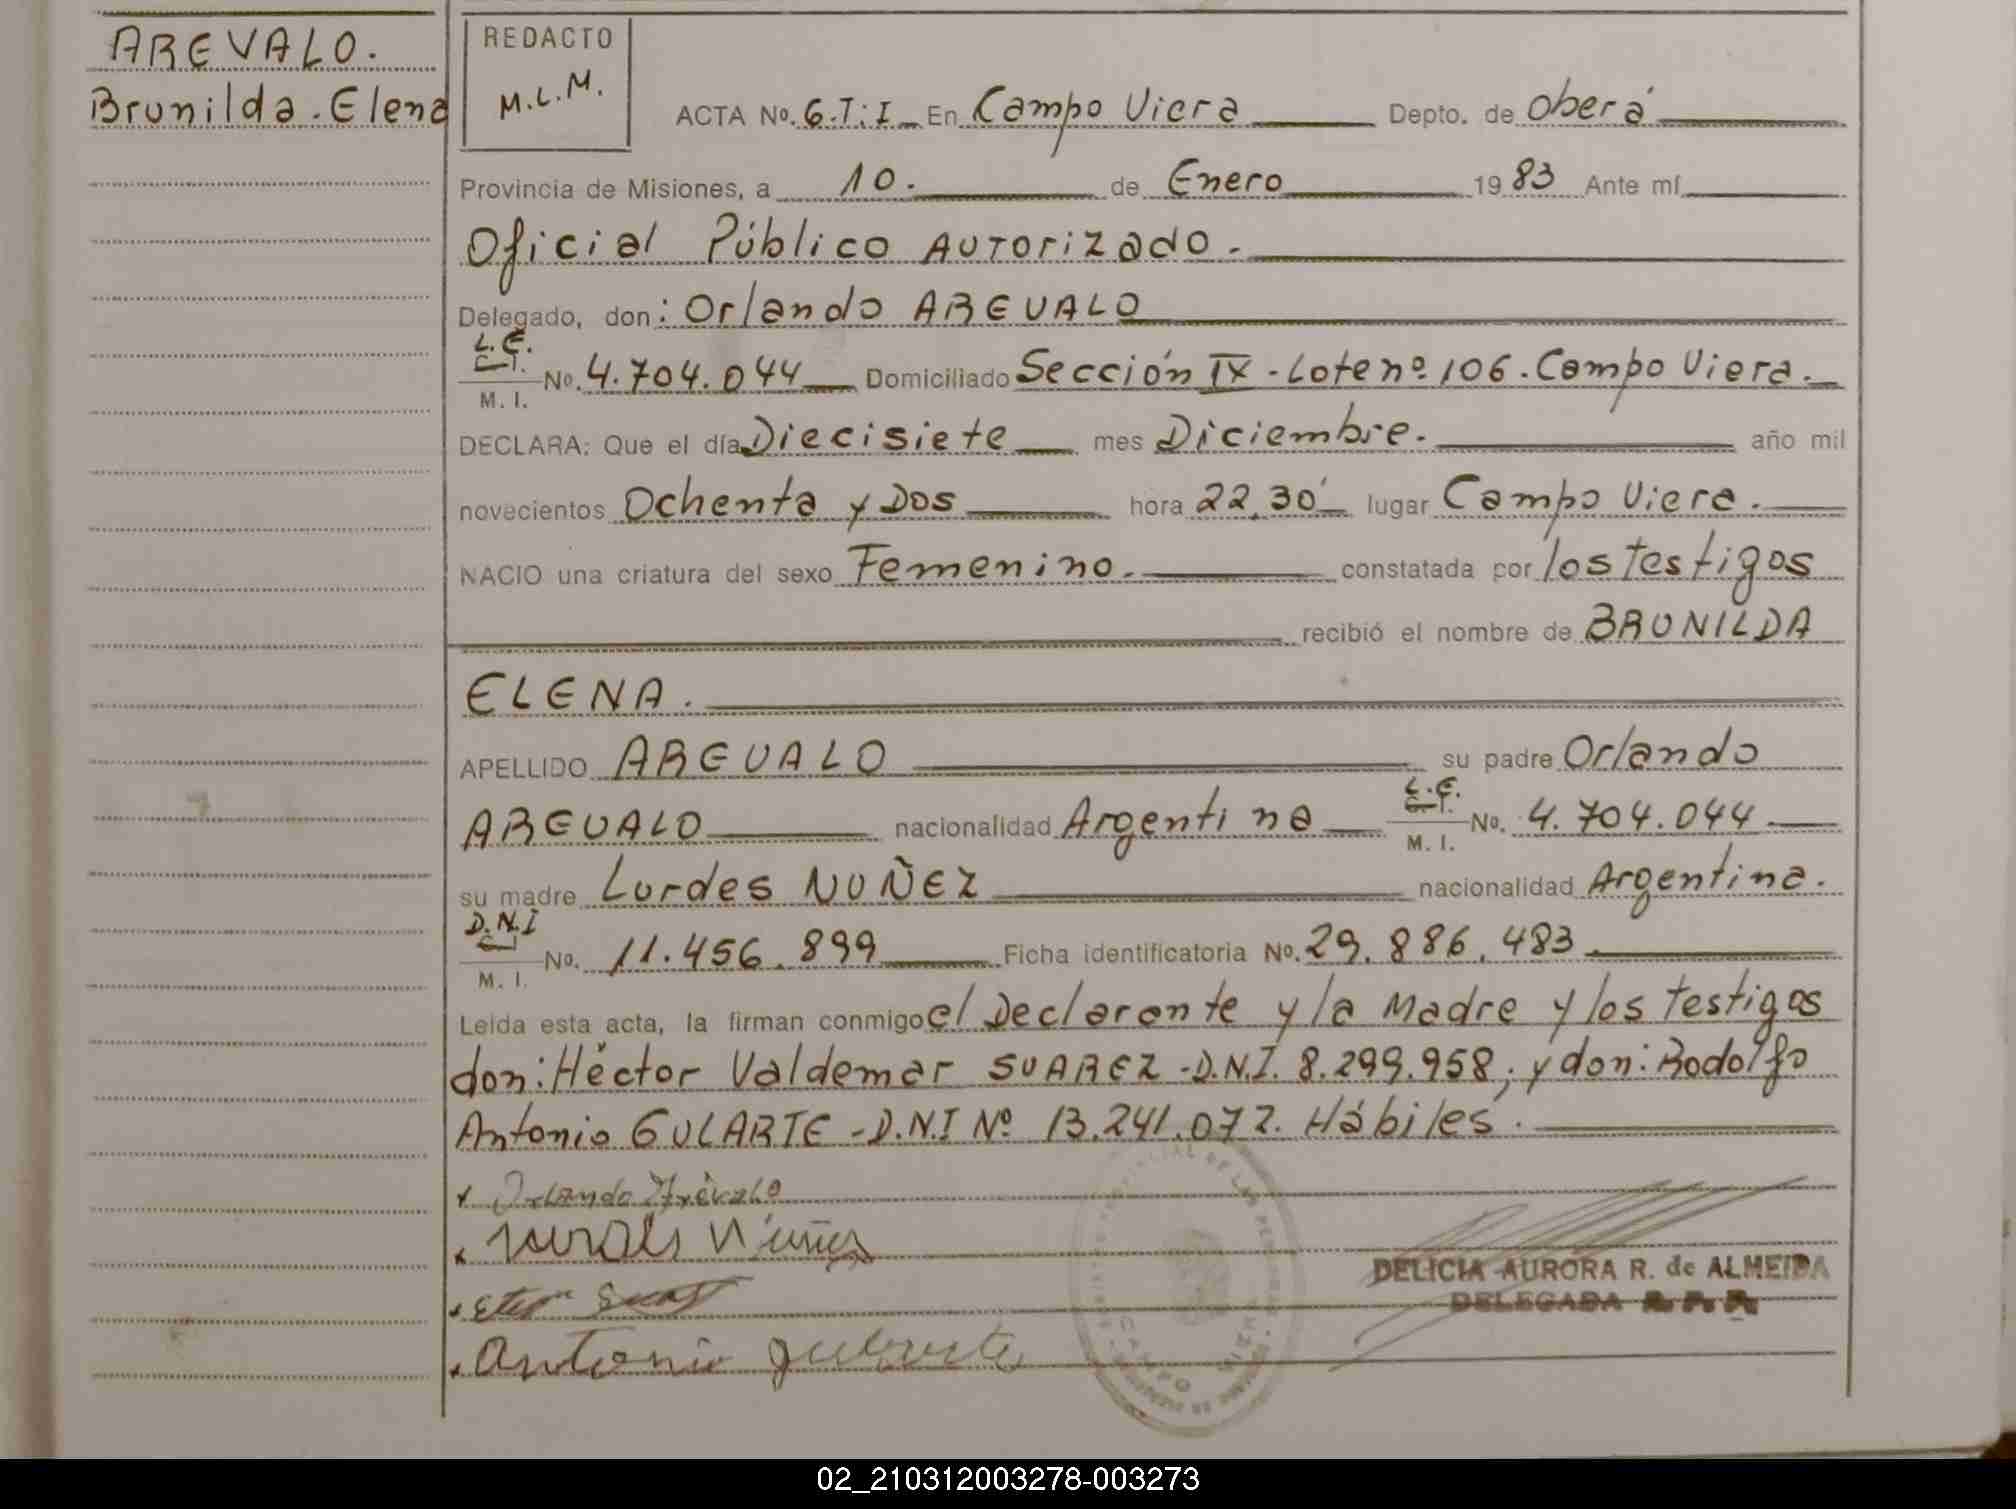 AREVALO.
Brunilda. Elena
REDACTO
M.L.M.
ACTA No. 6.T:I En Campo Viera Depto. de Oberá
Provincia de Misiones, a 10. de Enero 1983 Ante mí
Oficial Público AUTorizado.-
Delegado, don: Orlando AREVALO
L.E.
C.I.
M. I. No. 4.704.044 Domiciliado Sección IX - Lote nº 106. Campo Viera.
DECLARA: Que el día Diecisiete mes Diciembre. año mil
novecientos Ochenta y Dos hora 22,30' lugar Campo Viera.
NACIO una criatura del sexo Femenino. constatada por los Testigos
recibió el nombre de BRUNILDA
ELENA.
APELLIDO AREVALO su padre Orlando
L.E.
C.I.
AREVALO nacionalidad Argentina M. I. No. 4.704.044
su madre Lurdes NUÑEZ nacionalidad Argentina.
D.N.I
C.I
M. I. No. 11.456.899 Ficha identificatoria No. 29.886.483
Leída esta acta, la firman conmigo el Declarante y la Madre y los Testigos
don: Héctor Valdemar SUAREZ - D.N.I. 8.299.958; y don: Rodolfo
Antonio GULARTE - D.N.I Nº 13.241.072. Hábiles.
Orlando Arévalo
Lurdes Núñez
Antonio Gularte
CAMPO VIERA
DELICIA AURORA R. de ALMEIDA
DELEGADA R. P. P.
02_210312003278-003273